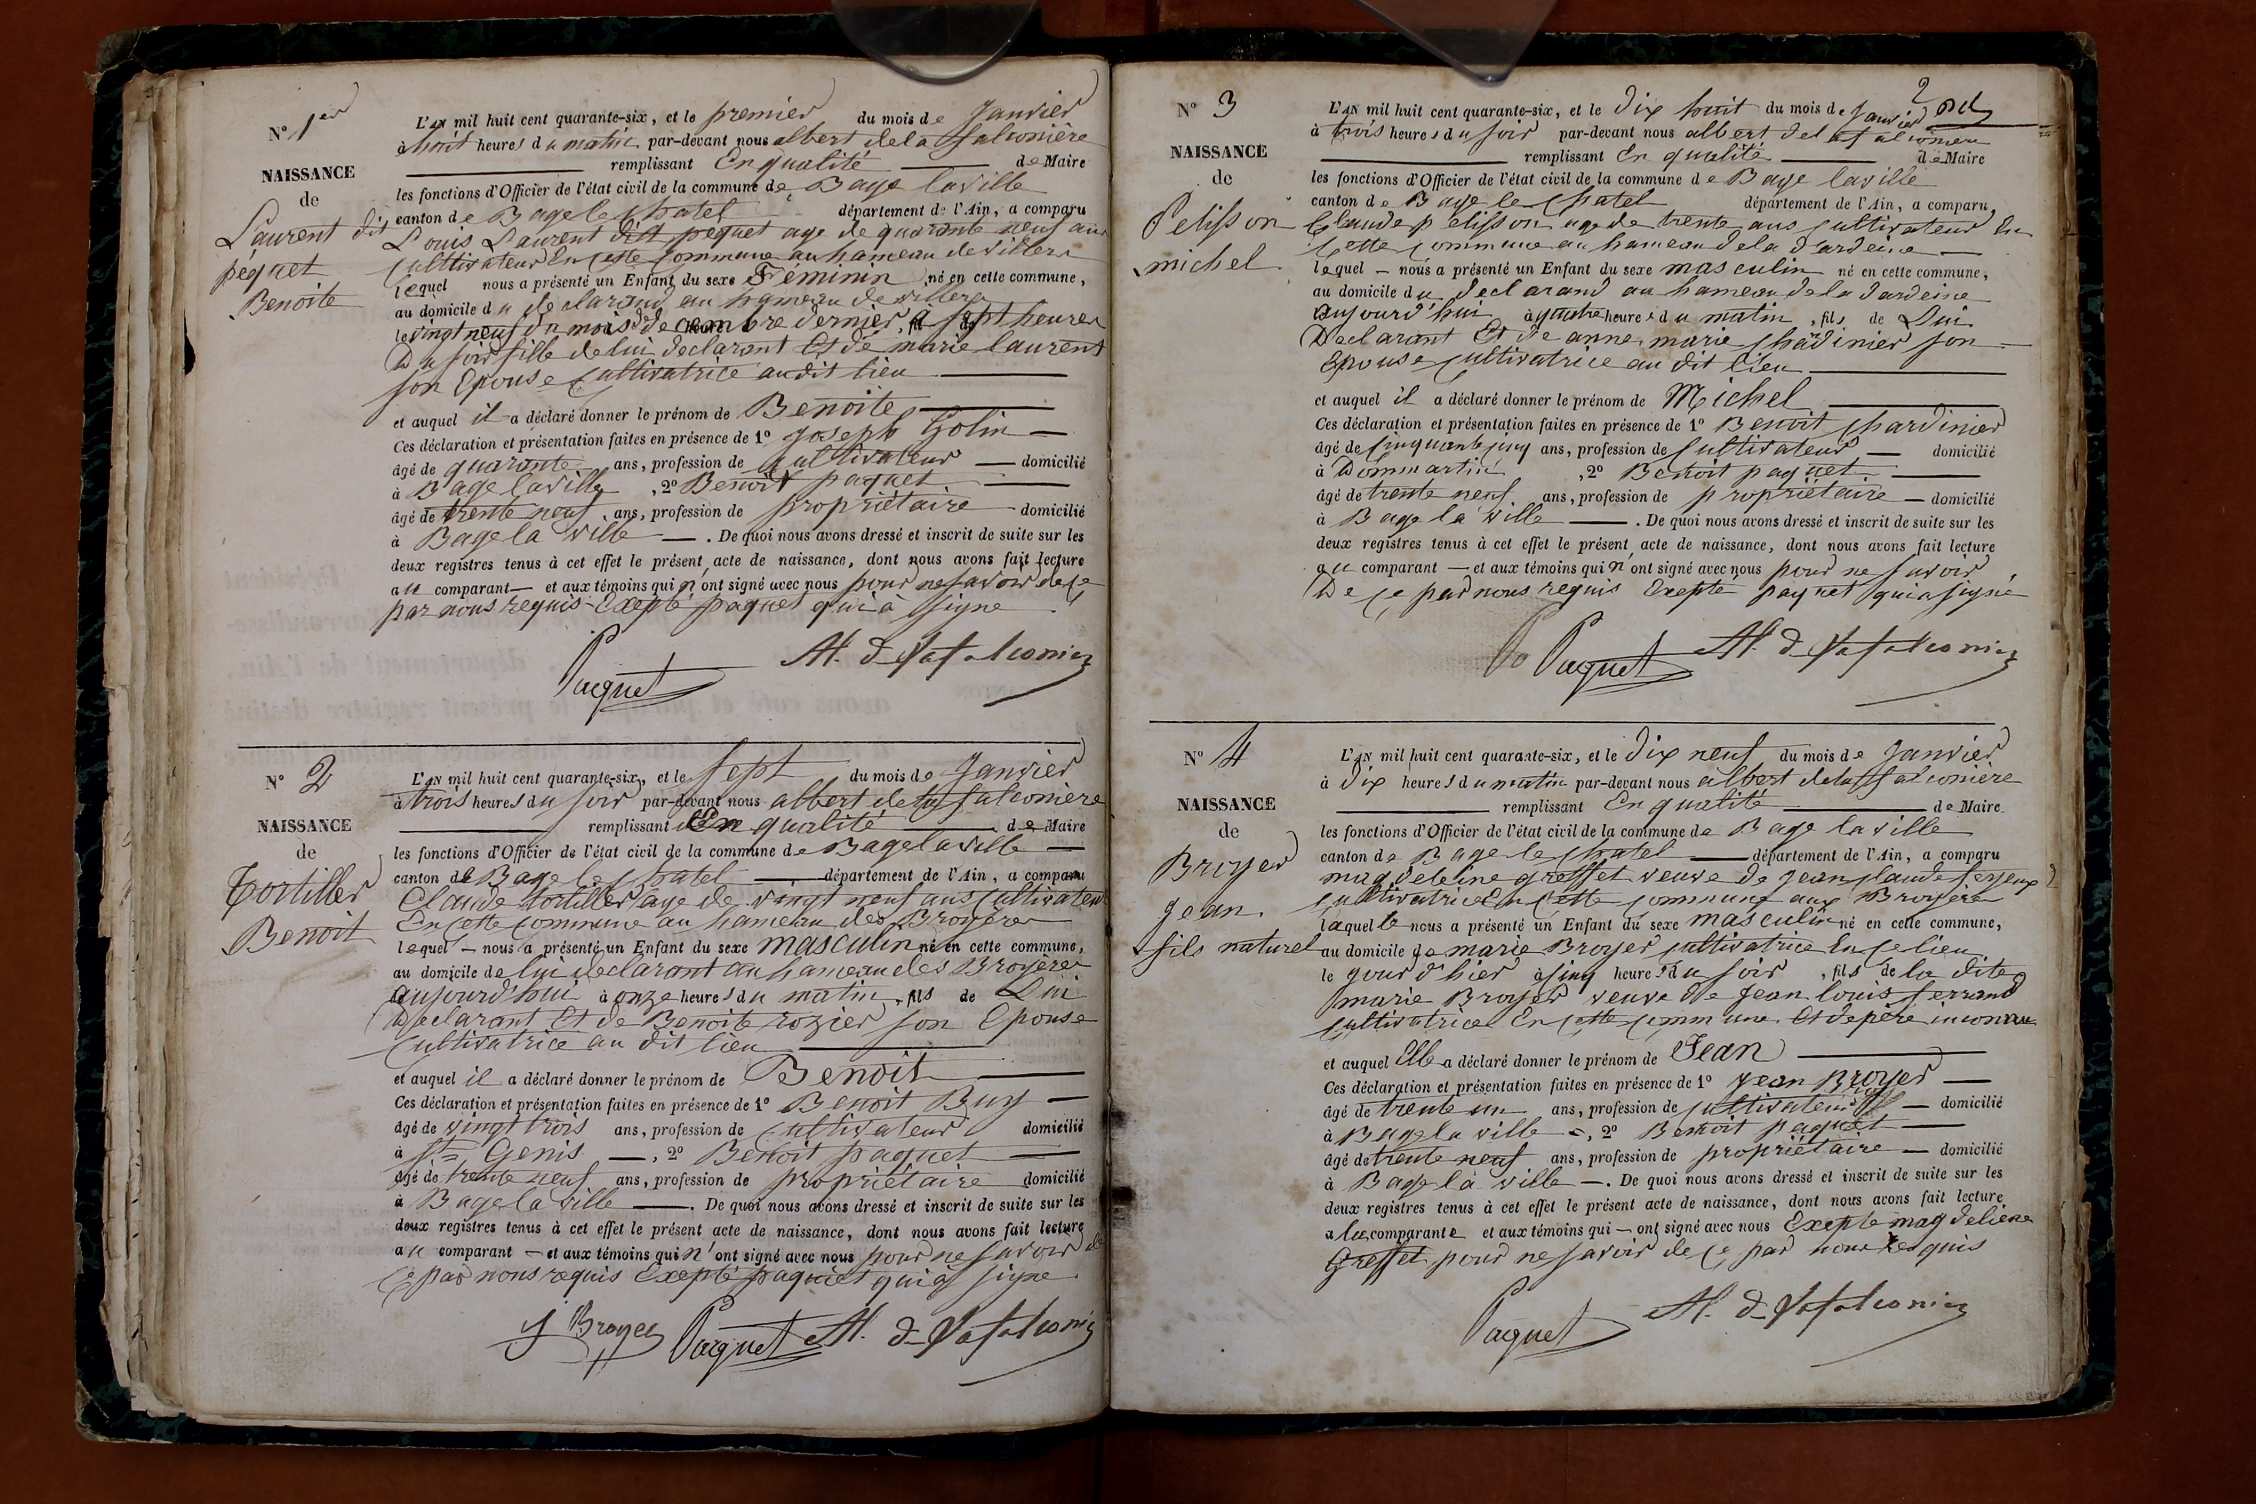 N° 1er
NAISSANCE
de
Laurent dit
péquet
Benoite
L'AN mil huit cent quarante-six, et le premier du mois de Janvier
à huit heures du matin par-devant nous albert de la falconière
remplissant En qualité de Maire
les fonctions d'Officier de l'état civil de la commune de Bage laville
canton de Bage le chatel département de l'Ain, a comparu
Louis Laurent dit pequet age de quarante neuf ans
cultivateur En cette commune au hameau de villers
lequel nous a présenté un Enfant du sexe Féminin né en cette commune,
au domicile du declarand au hameau de villers
le vingt neuf du mois de decembre dernier a sept heures
Du soir fille de lui declarant Et de marie laurent
son Epouse cultivatrice audit lieu
et auquel il a déclaré donner le prénom de Benoite
Ces déclaration et présentation faites en présence de 1° Joseph Golin
âgé de quarante ans, profession de cultivateur domicilié
à Bage laville , 2° Benoit paquet
âgé de trente neuf ans, profession de propriétaire domicilié
à Bage la ville . De quoi nous avons dressé et inscrit de suite sur les
deux registres tenus à cet effet le présent acte de naissance, dont nous avons fait lecture
au comparant et aux témoins qui n'ont signé avec nous pour ne savoir de ce
par nous requis Exepté paquet qui à signe
Paquet Al. de Lafalconière
N° 2
NAISSANCE
de
Tortiller
Benoit
L'AN mil huit cent quarante-six, et le sept du mois de Janvier
à trois heures du soir par-devant nous albert de la falconière
remplissant En qualité de Maire
les fonctions d'Officier de l'état civil de la commune de Bage laville
canton de Bage le chatel département de l'Ain, a comparu
Claude tortiller age de vingt neuf ans cultivateur
En cette commune au hameau des Broyères
lequel nous a présenté un Enfant du sexe masculin né en cette commune,
au domicile de lui declarant au hameau des Broyères
aujourd'hui à onze heures du matin, fils de Lui
Declarant Et de Benoite rozier son Epouse
cultivatrice au dit lieu
et auquel il a déclaré donner le prénom de Benoit
Ces déclaration et présentation faites en présence de 1° Benoit Buy
âgé de vingt trois ans, profession de cultivateur domicilié
à St Genis , 2° Benoit paquet
âgé de trente neuf ans, profession de propriétaire domicilié
à Bage la ville . De quoi nous avons dressé et inscrit de suite sur les
deux registres tenus à cet effet le présent acte de naissance, dont nous avons fait lecture
au comparant et aux témoins qui n'ont signé avec nous pour ne savoir de
ce par nous requis Exepté paquet qui à signe
J Broyer Paquet Al. de Lafalconière
2nd
N° 3
NAISSANCE
de
Pelisson
michel
L'AN mil huit cent quarante-six, et le Dix huit du mois de Janvier
à trois heures du soir par-devant nous albert de lafalconiere
remplissant En qualité de Maire
les fonctions d'Officier de l'état civil de la commune de Bage laville
canton de Bage le chatel département de l'Ain, a comparu
Claude pelisson age de trente ans cultivateur En
Cette commune au hameau dela Jardeine
lequel nous a présenté un Enfant du sexe masculin né en cette commune,
au domicile du declarand au hameau dela Jardeine
aujourd'hui à quatre heures du matin, fils de Lui
Declarant Et de anne marie chardinier son
Epouse cultivatrice au dit lieu
et auquel il a déclaré donner le prénom de Michel
Ces déclaration et présentation faites en présence de 1° Benoit chardinier
âgé de cinquante cinq ans, profession de cultivateur domicilié
à Dommartin , 2° Benoit paquet
âgé de trente neuf ans, profession de propriétaire domicilié
à Bage la ville . De quoi nous avons dressé et inscrit de suite sur les
deux registres tenus à cet effet le présent acte de naissance, dont nous avons fait lecture
au comparant et aux témoins qui n'ont signé avec nous pour ne savoir
De ce par nous requis Exepté paquet qui a signé
Paquet Al. de Lafalconière
N° 4
NAISSANCE
de
Broyer
Jean
fils naturel
L'AN mil huit cent quarante-six, et le Dix neuf du mois de Janvier
à Dix heures du matin par-devant nous albert de la falconière
remplissant En qualité de Maire
les fonctions d'Officier de l'état civil de la commune de Bage laville
canton de Bage le chatel département de l'Ain, a comparu
magdeleine greffet veuve de Jean claude
cultivatrice En Cette commune aux Broyères
laquelle nous a présenté un Enfant du sexe masculin né en cette commune,
au domicile de marie Broyer cultivatrice En ce lieu
le jour d'hier à cinq heures du soir, fils de la dite
marie Broyer veuve de Jean louis ferrand
cultivatrice En cette commune Et de père inconnu
et auquel Elle a déclaré donner le prénom de Jean
Ces déclaration et présentation faites en présence de 1° Jean Broyer
âgé de trente un ans, profession de cultivateur domicilié
à Bage la ville , 2° Benoit paquet
âgé de trente neuf ans, profession de propriétaire domicilié
à Bage la ville . De quoi nous avons dressé et inscrit de suite sur les
deux registres tenus à cet effet le présent acte de naissance, dont nous avons fait lecture
a la comparante et aux témoins qui ont signé avec nous Exepté magdeliene
Greffet pour ne savoir de ce par nous requis
Paquet Al. de Lafalconière